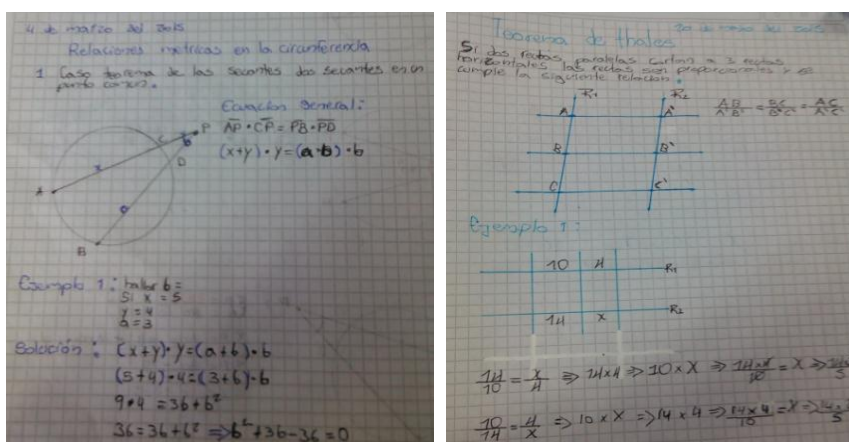 4 de marzo del 2015
Relaciones metricas en la circunferencia
1 Caso teorema de las secantes dos secantes en un
punto común.
Ecuacion General:
AP • CP = PB • PD
(x+y) • y = (a+b) • b
A
x
C
y
P
b
D
a
B
Ejemplo 1: hallar b =
Si x = 5
y = 4
a = 3
Solución: (x+y) • y = (a+b) • b
(5+4) • 4 = (3+b) • b
9 • 4 = 3b + b²
36 = 3b + b² ⇒ b² + 3b - 36 = 0
Teorema de thales
Si dos rectas paralelas cortan a 3 rectas
horizontales las rectas son proporcionales y se
cumple la siguiente relacion.
R₁ R₂
A A'
B B'
C C'
AB/A'B' = BC/B'C' = AC/A'C'
Ejemplo 1:
10 4 R₁
14 x R₂
14/10 = x/4 ⇒ 14x4 ⇒ 10 x X ⇒ 14x4/10 = X ⇒
10/14 = 4/x ⇒ 10 x X ⇒ 14 x 4 ⇒ 14x4/10 = X ⇒